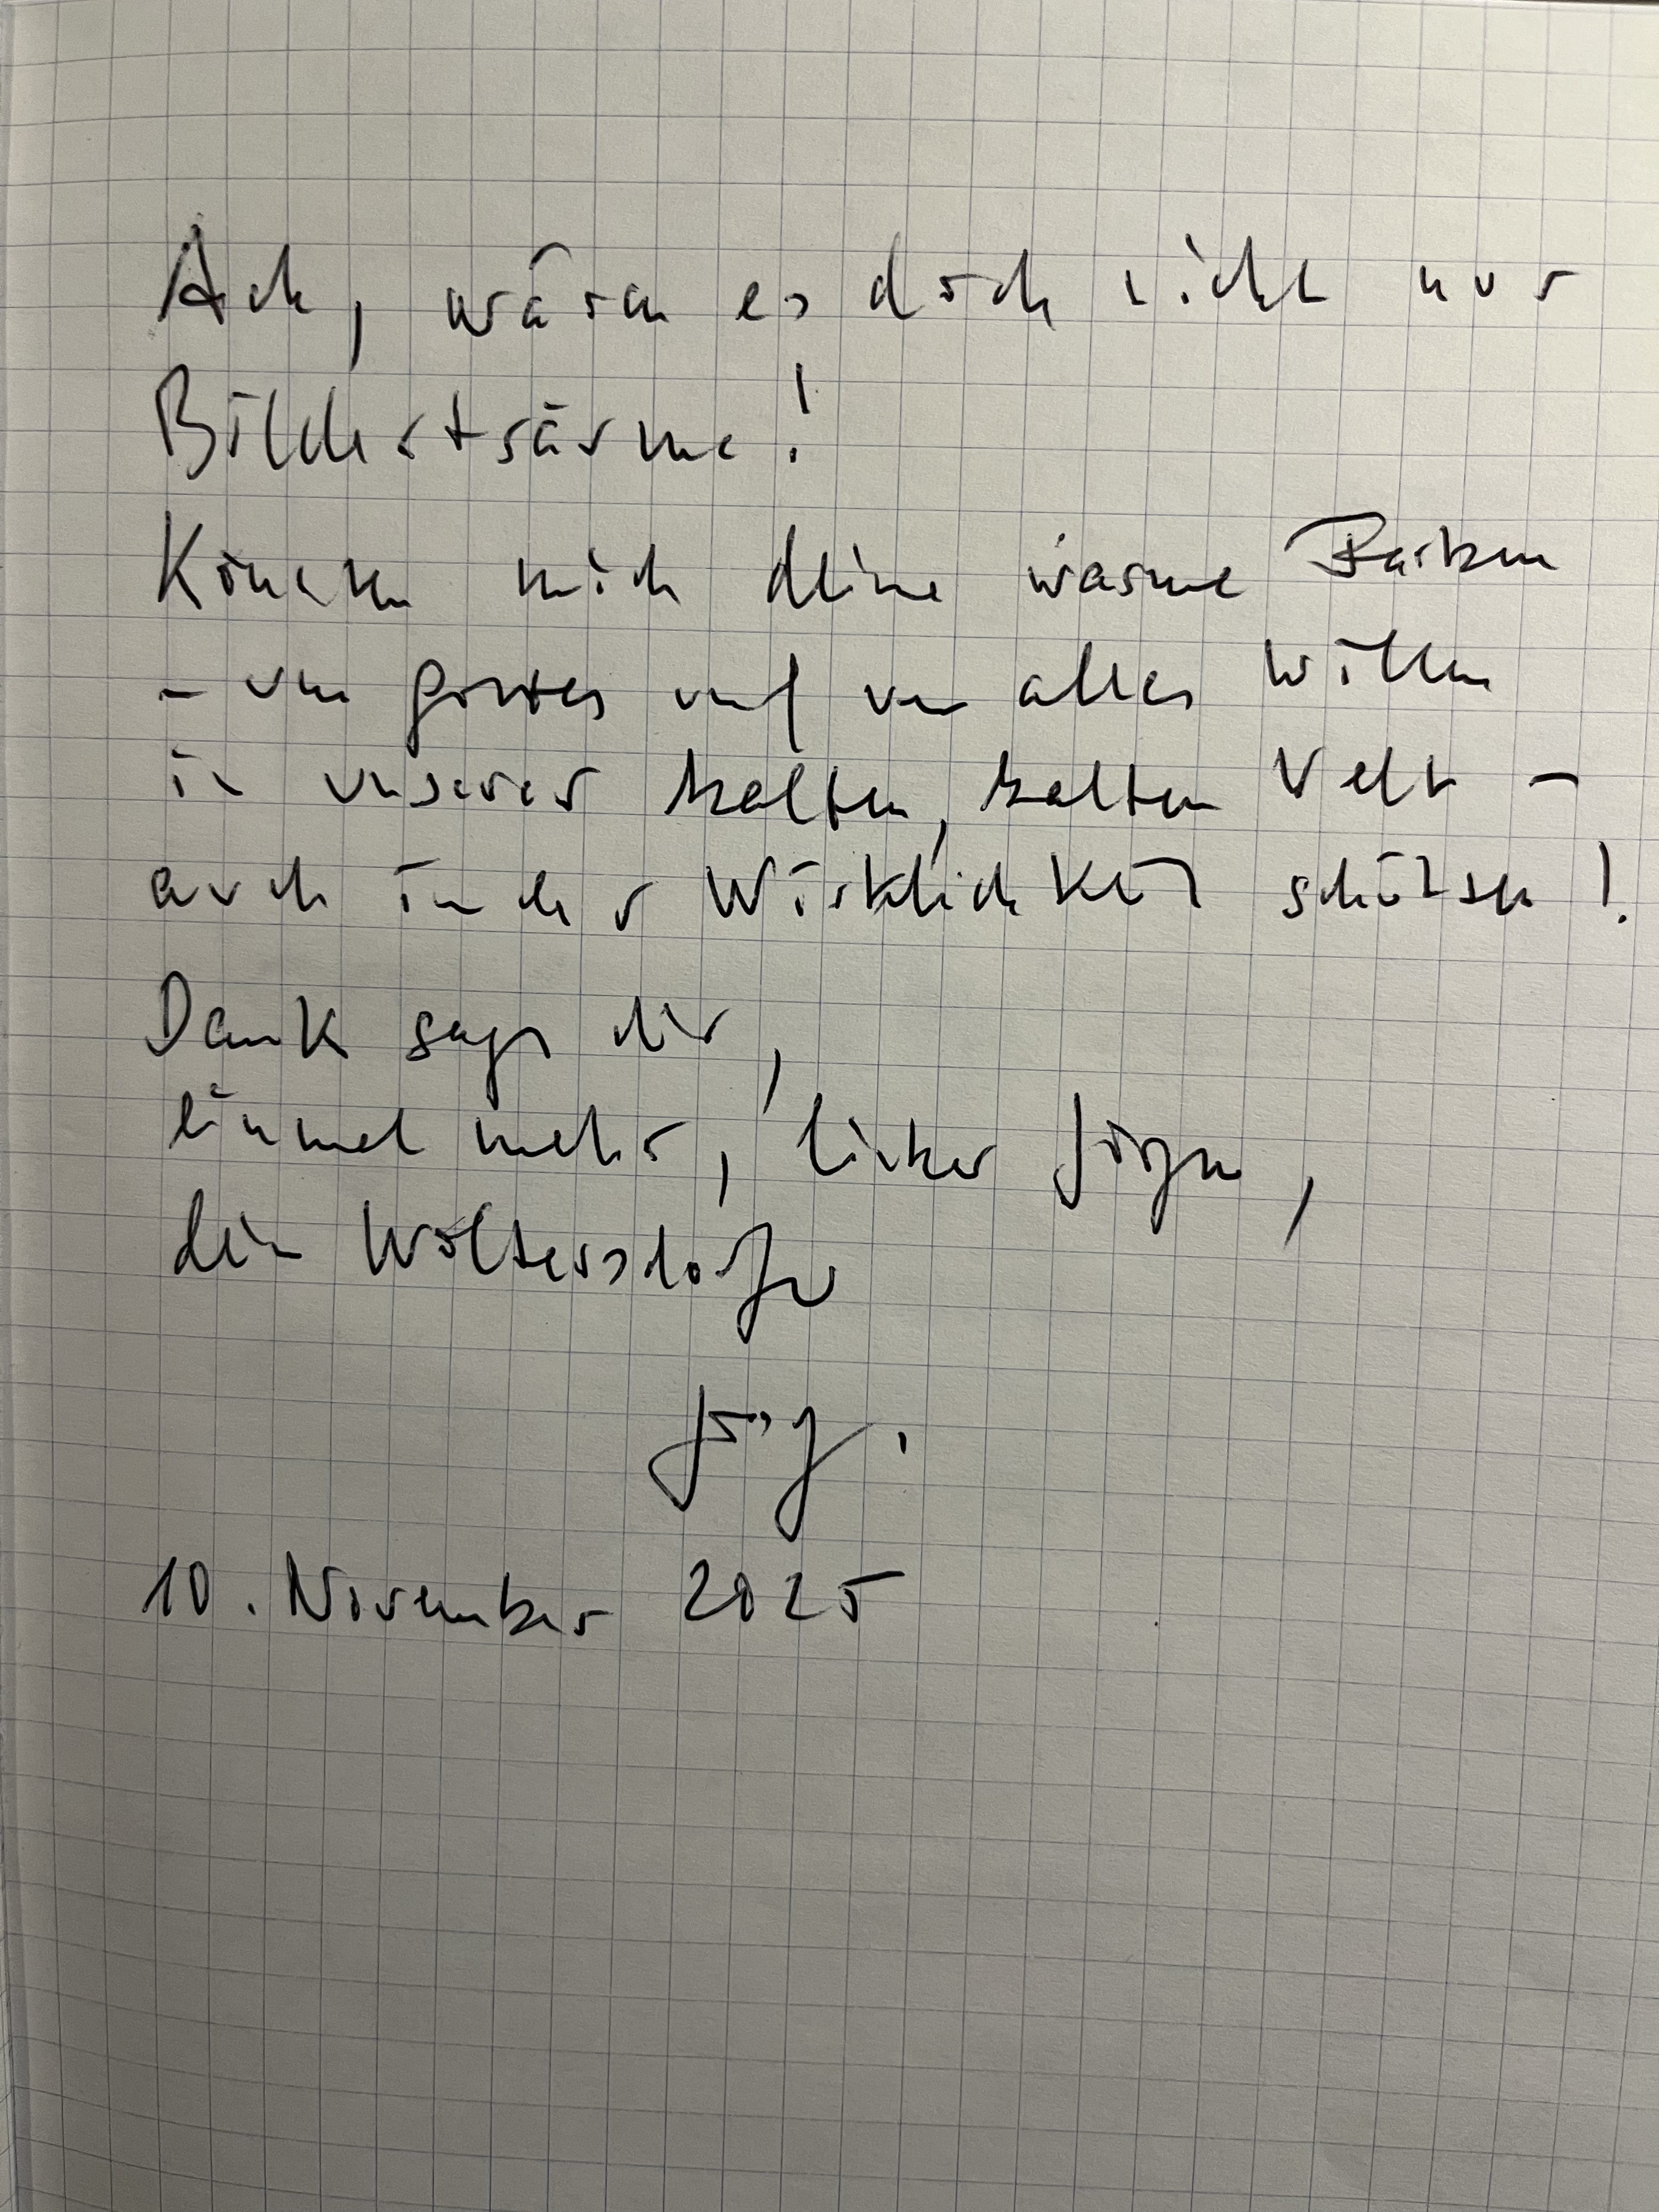 Ach, wären es doch nicht nur
Bilderträume!
Können mich deine warme Farben
- um gottes und um alles Willen
in unserer kalten, kalten Welt -
auch in der Wirklichkeit schützen!
Dank sagt dir,
einmal mehr, lieber Jürgen,
dein Woltersdorfer
10. November 2025